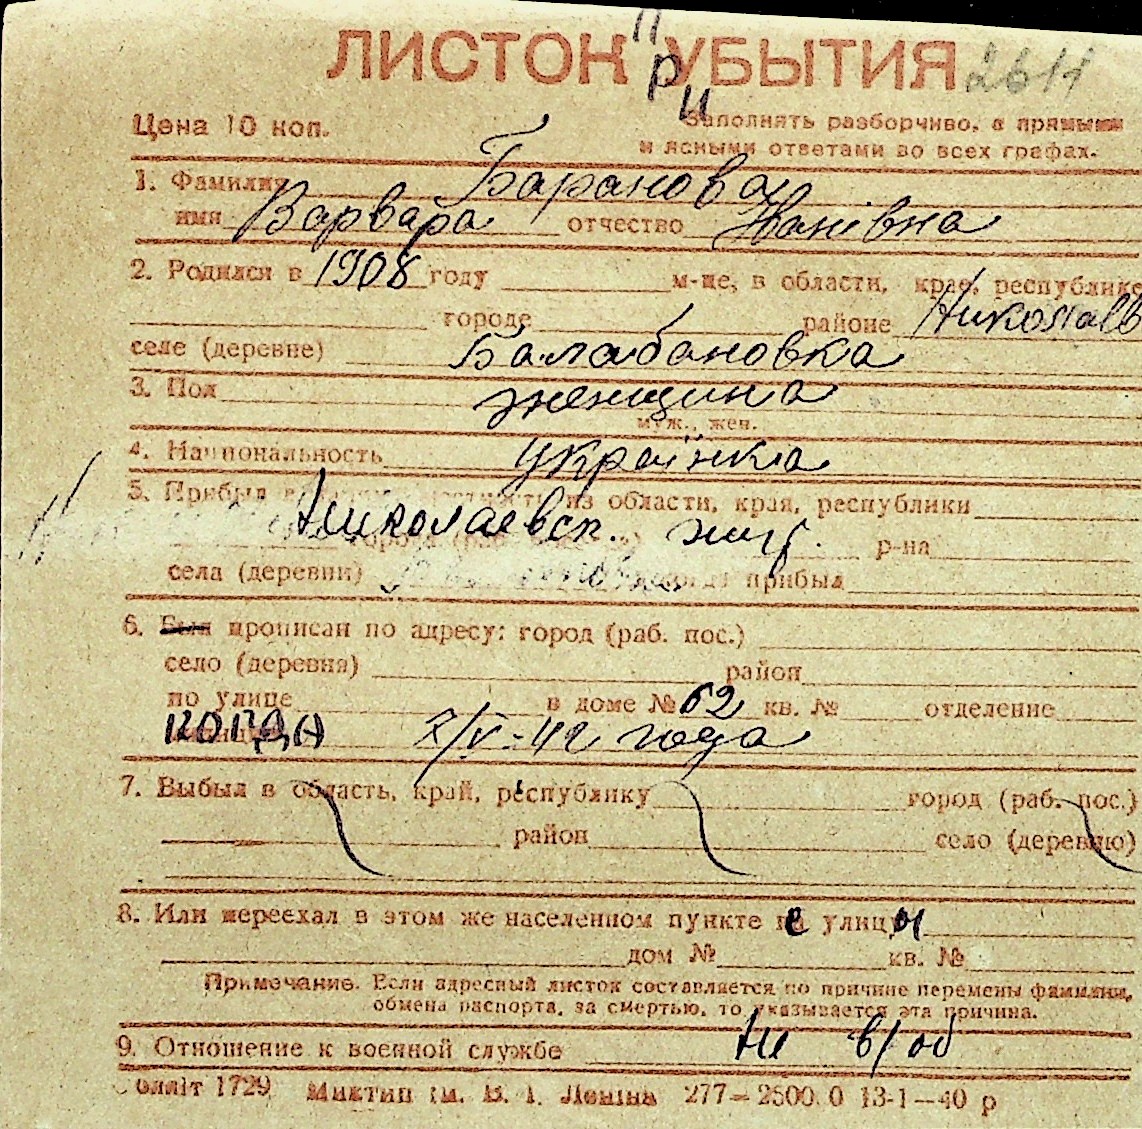 ЛИСТОК ПРИ УБЫТИЯ 2611
Цена 10 коп.
Заполнять разборчиво, а прямыми
и ясными ответами во всех графах.
1. Фамилия Баранова
имя Варвара отчество Іванівна
2. Родился в 1908 году м-це, в области, крае, республике
городе районе Николаев
селе (деревне) Балабановка
3. Пол женщина
муж., жен.
4. Национальность українка
5. Прибыл из области, края, республики
Николаевск. р-на
села (деревни) прибыл
6. Был прописан по адресу: город (раб. пос.)
село (деревня) район
по улице в доме № 62 кв. № отделение
КОГДА X/V-42 года
7. Выбыл в область, край, республику город (раб. пос.)
район село (деревню)
8. Или переехал в этом же населенном пункте с улицы
дом № кв. №
Примечание. Если адресный листок составляется по причине перемены фамилии,
обмена паспорта, за смертью, то указывается эта причина.
9. Отношение к военной службе Не в/об
Обліт 1729 Миктип ім. В. І. Леніна 277—2500.0 13-1—40 р